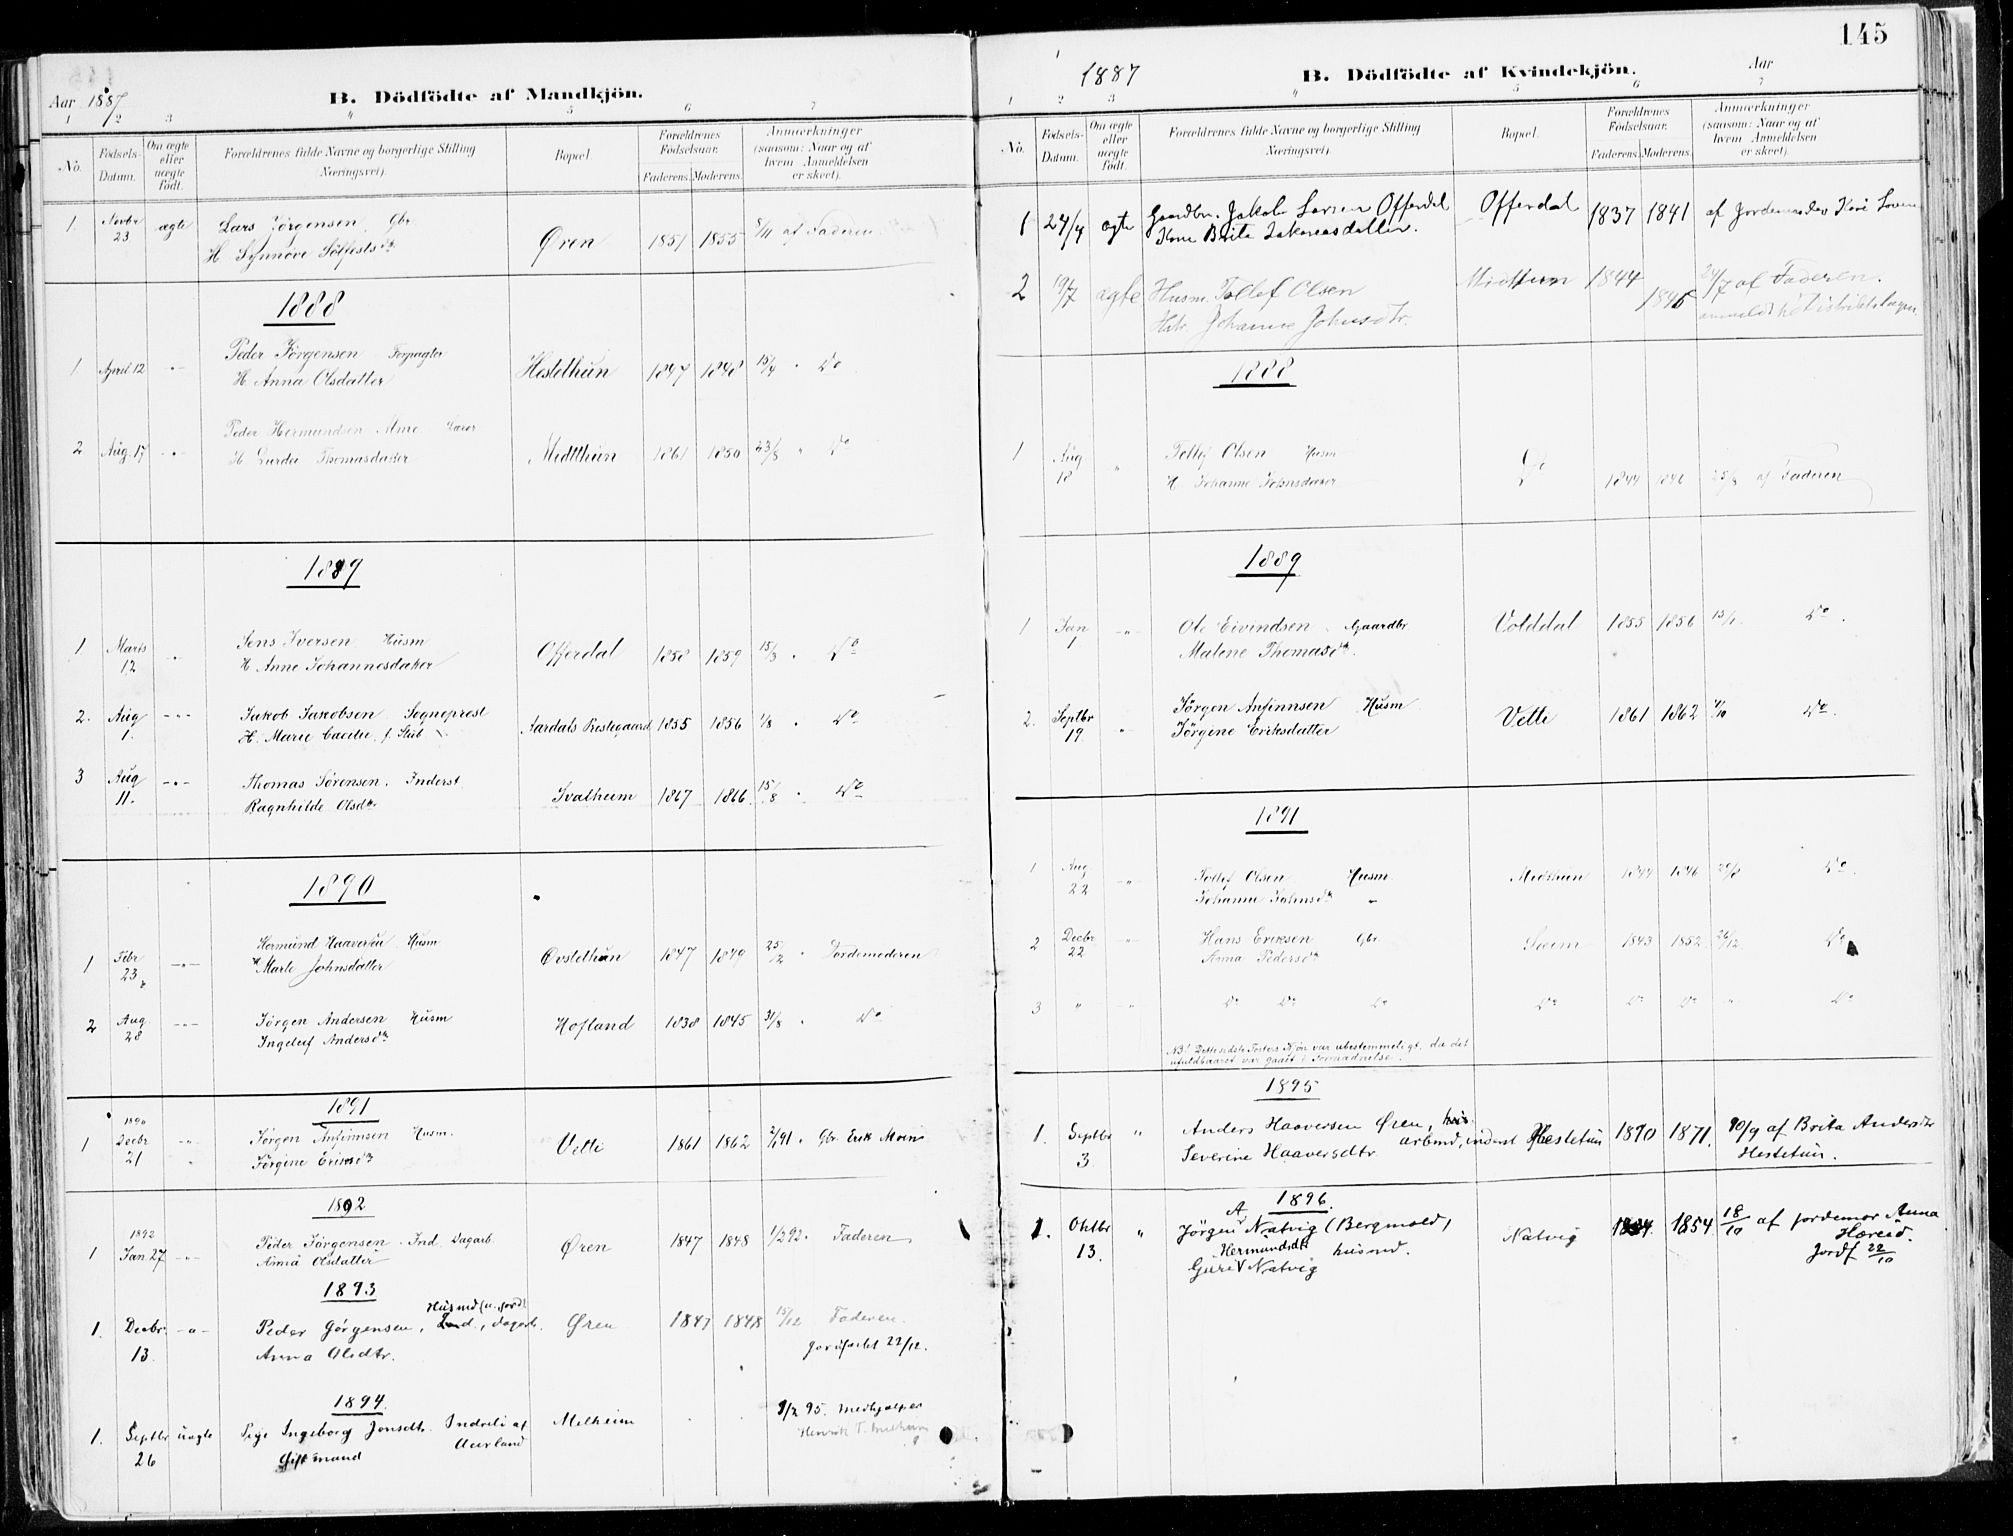 Aar 1887
B. Dödfödte af Mandkjön.
1 2 3 " 5 6 7
No. Födsels-Datum. Om ægte eller uægte födt. Forældrenes fulde Navne og borgerlige Stilling (Næringsvei). Bopæl. Forældrenes Födselsaar. Faderens. Moderens. Anmærkninger (saasom: Naar og af hvem Anmeldelsen er skeet).
1. Novbr 23 ægte Lars Jörgensen Gbr. Øren 1851 1855 8/11 af Faderen
H. Synnöve Sölfestsdr
1888
1 April 12 -"- Peder Jörgensen Forpagter Hestethun 1847 1848 15/4 " Do
H. Anna Olsdatter
2 Aug. 17 -"- Peder Hermundsen Lærer Midtthun 1861 1850 23/8 " Do
H. Thomasdatter
1889
1 Marts 12 -"- Jens Iversen Husm Offerdal 1858 1859 15/3 " Do
H. Anne Johannesdatter
2. Aug 1. -"- Jakob Jakobsen Sogneprest Aardals Prestegaard 1855 1856 1/8 " Do
H. Marie Cæcilie f. Stub
3 Aug 11. -"- Thomas Sörensen. Inderst Svalheim 1867 1866 15/8 " Do
Ragnhilde Olsdr
1890
1 Febr 23 -"- Hermund Haaversen Husm Øvstethun 1847 1849 25/2 " Jordemoderen
H Marte Johnsdatter
2 Aug 28 -"- Jörgen Andersen Husm Hofland 1838 1845 31/8 " Do
Ingeleif Andersdr
1891
1 1890 Decbr 21 -"- Jörgen Anfinnsen Husm. Vetti 1861 1862 2/1 91 Gbr. Erik Moen
Jörgine Eriksdr
1892
1 1892 Jan 27 -"- Peder Jörgensen Ind. Dagarb. Øren 1847 1848 1/2 92 Faderen
Anna Olsdatter
1893
1. Decbr. 13. -"- Peder Jörgensen, Husmd (u. jord) Ind., dagarb. Øren 1847 1848 15/12 Faderen.
Anna Olsdtr. jordfæstet 22/12.
1894.
1. Septbr 26 uægte Pige Ingeborg Jonsdtr. Indreli af Aurland Melheim 9/2 95. Medhjælper
Gift mand Henrik T. Melheim
145
1887
B. Dödfödte af Kvindekjön.
Aar
1 2 3 " 5 6 7
No. Födsels-Datum. Om ægte eller uægte födt. Forældrenes fulde Navne og borgerlige Stilling (Næringsvei). Bopæl. Forældrenes Födselsaar. Faderens. Moderens. Anmærkninger (saasom: Naar og af hvem Anmeldelsen er skeet).
1 24/4 ægte Gaardbr. Jakob Larsen Offerdal Offerdal 1837 1841 af Jordemoder Kari
Kone Brita Zakariasdatter.
2 19/7 ægte Husm. Tollef Olsen Midthun 1844 1846 24/7 af Faderen.
Hstr. Johanne Johnsdtr. anmeldt Distriktslægen
1888
1 Aug 18 " Tollef Olsen Husm Do 1844 1846 25/8 af Faderen
H Johanne Johnsdatter
1889
1 Jan 1 -"- Ole Eivindsen Gaardbr. Volddal 1855 1856 15/1. Do.
Malene Thomasdr.
2. Septbr 19 " Jörgen Anfinnsen Husm Vetti 1861 1862 /10 Do.
Jörgine Eriksdatter
1891
1 Aug 22 -"- Tollef Olsen Husm. Midthun 1844 1846 29/8 Do.
Johanne Johnsdr "
2 Decbr 22 -"- Hans Eriksen Gbr. Seim 1843 1852 26/12 Do
Anna Pedersdr
3 " -"- Do Do Do Do Do Do " Do
NB! Dette sidste Fosters Kjön var ubestemmeligt, da det
ufuldbaaret var gaaet i Forraadnelse.
1895
1. Septbr 3. " Anders Haaversen Øren, arbmd, inderst Hestetun 1870 1871. 10/9 af Brita Andersdtr
Severine Haaversdtr. Hestetun.
1896.
1. Oktbr 13. " Jörgen A Natvig (Bergmold) Natvig 1854 18/10 af jordemor Anna Hæreid.
Guri Hermundsdtr Natvig husmd. Jordf 22/10